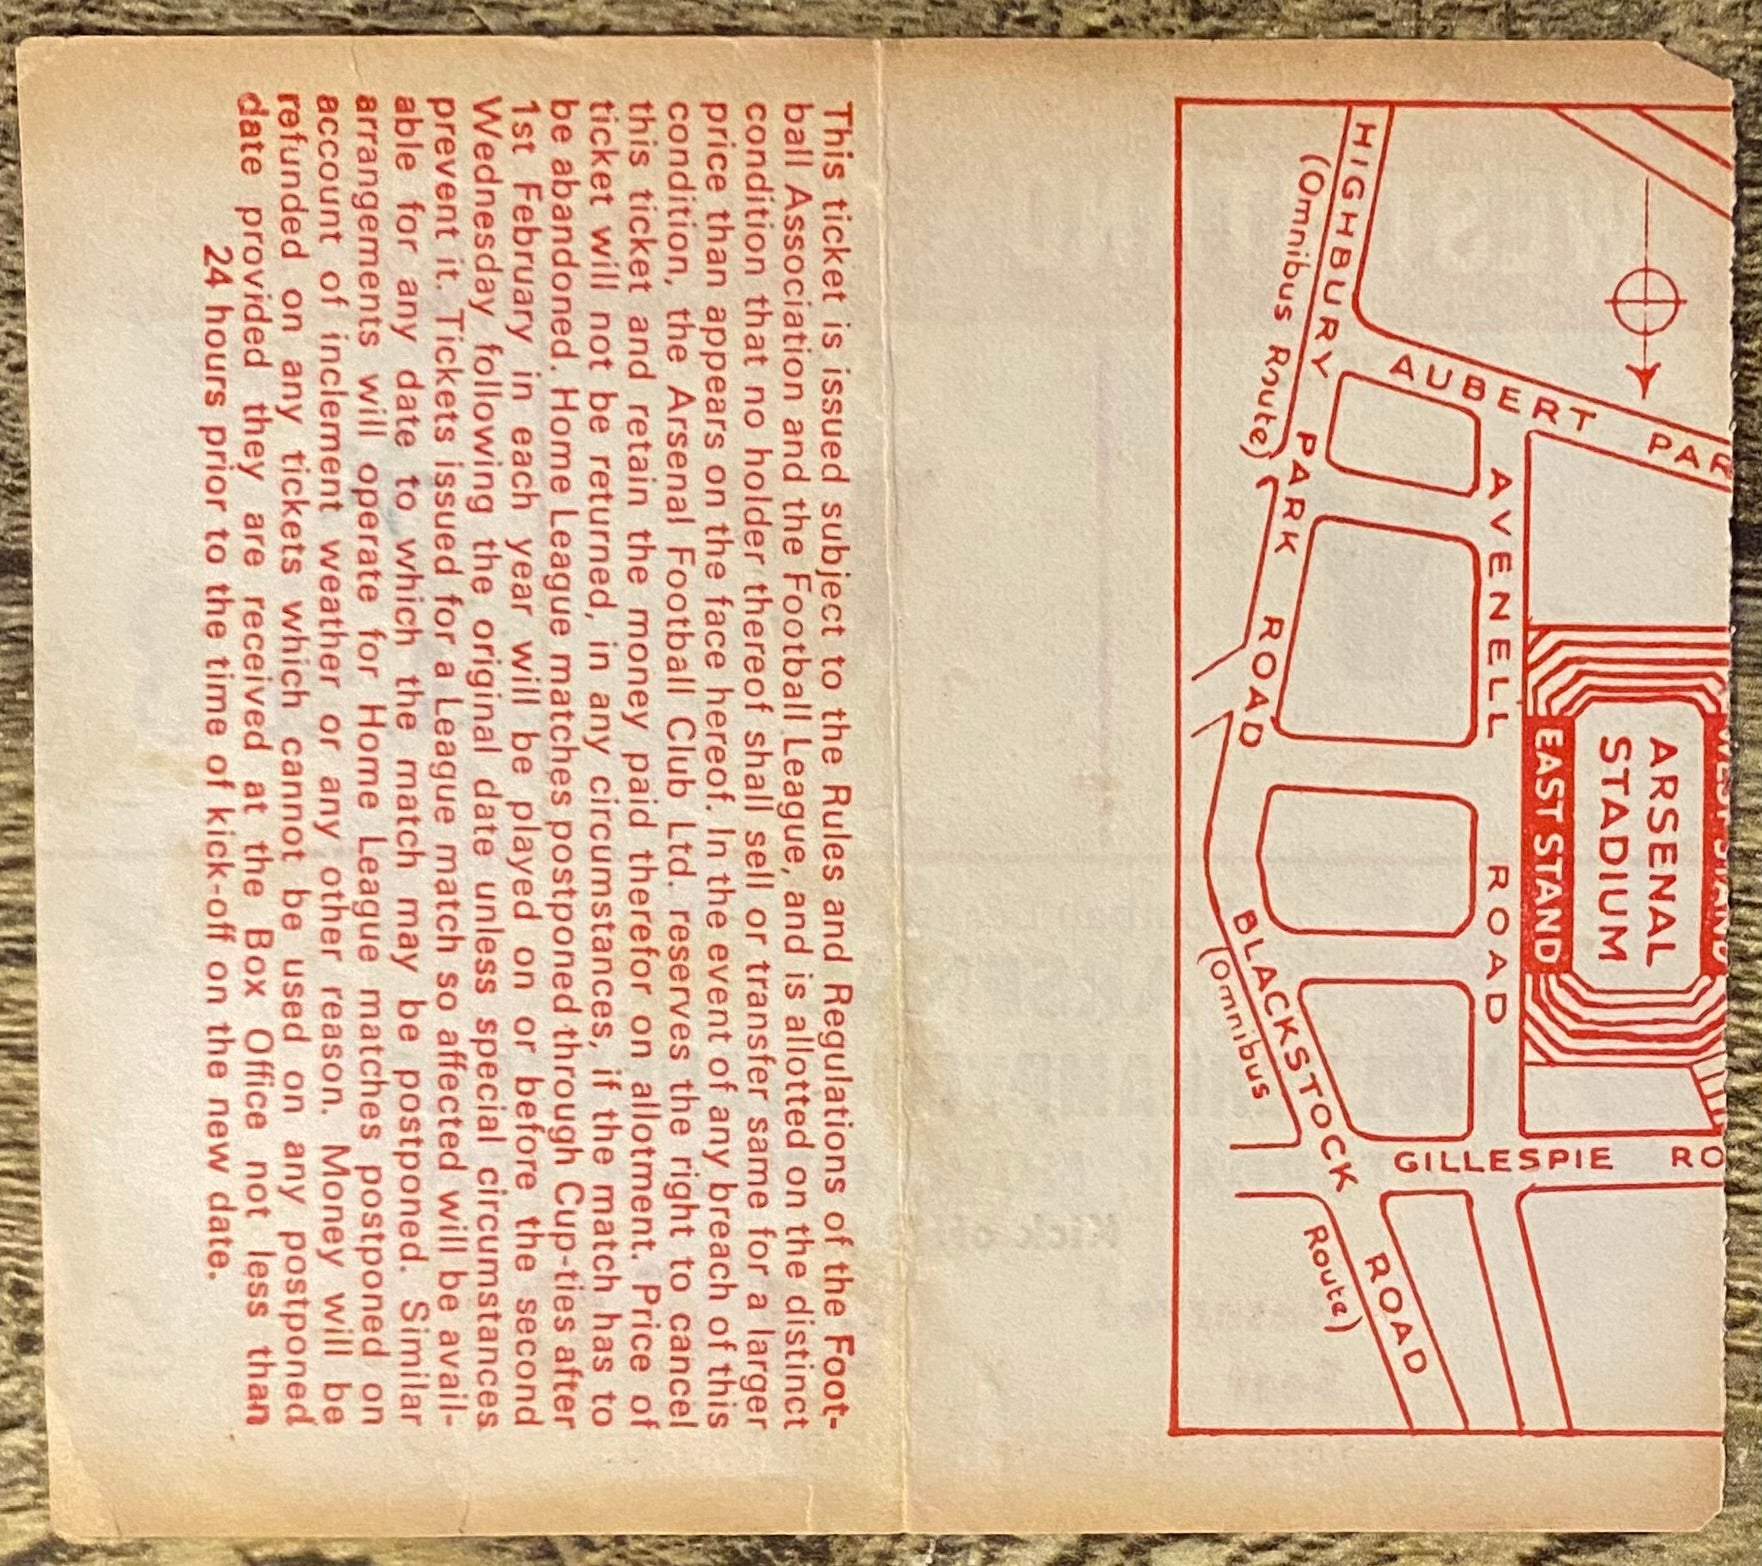 WEST STAND
ARSENAL
STADIUM
EAST STAND
AUBERT PAR
GILLESPIE RO
AVENELL ROAD
HIGHBURY PARK ROAD
(Omnibus Route)
BLACKSTOCK ROAD
(Omnibus Route)
This ticket is issued subject to the Rules and Regulations of the Foot-
ball Association and the Football League, and is allotted on the distinct
condition that no holder thereof shall sell or transfer same for a larger
price than appears on the face hereof. In the event of any breach of this
condition, the Arsenal Football Club Ltd. reserves the right to cancel
this ticket and retain the money paid therefor on allotment. Price of
ticket will not be returned, in any circumstances, if the match has to
be abandoned. Home League matches postponed through Cup-ties after
1st February in each year will be played on or before the second
Wednesday following the original date unless special circumstances
prevent it. Tickets issued for a League match so affected will be avail-
able for any date to which the match may be postponed. Similar
arrangements will operate for Home League matches postponed on
account of inclement weather or any other reason. Money will be
refunded on any tickets which cannot be used on any postponed
date provided they are received at the Box Office not less than
24 hours prior to the time of kick-off on the new date.